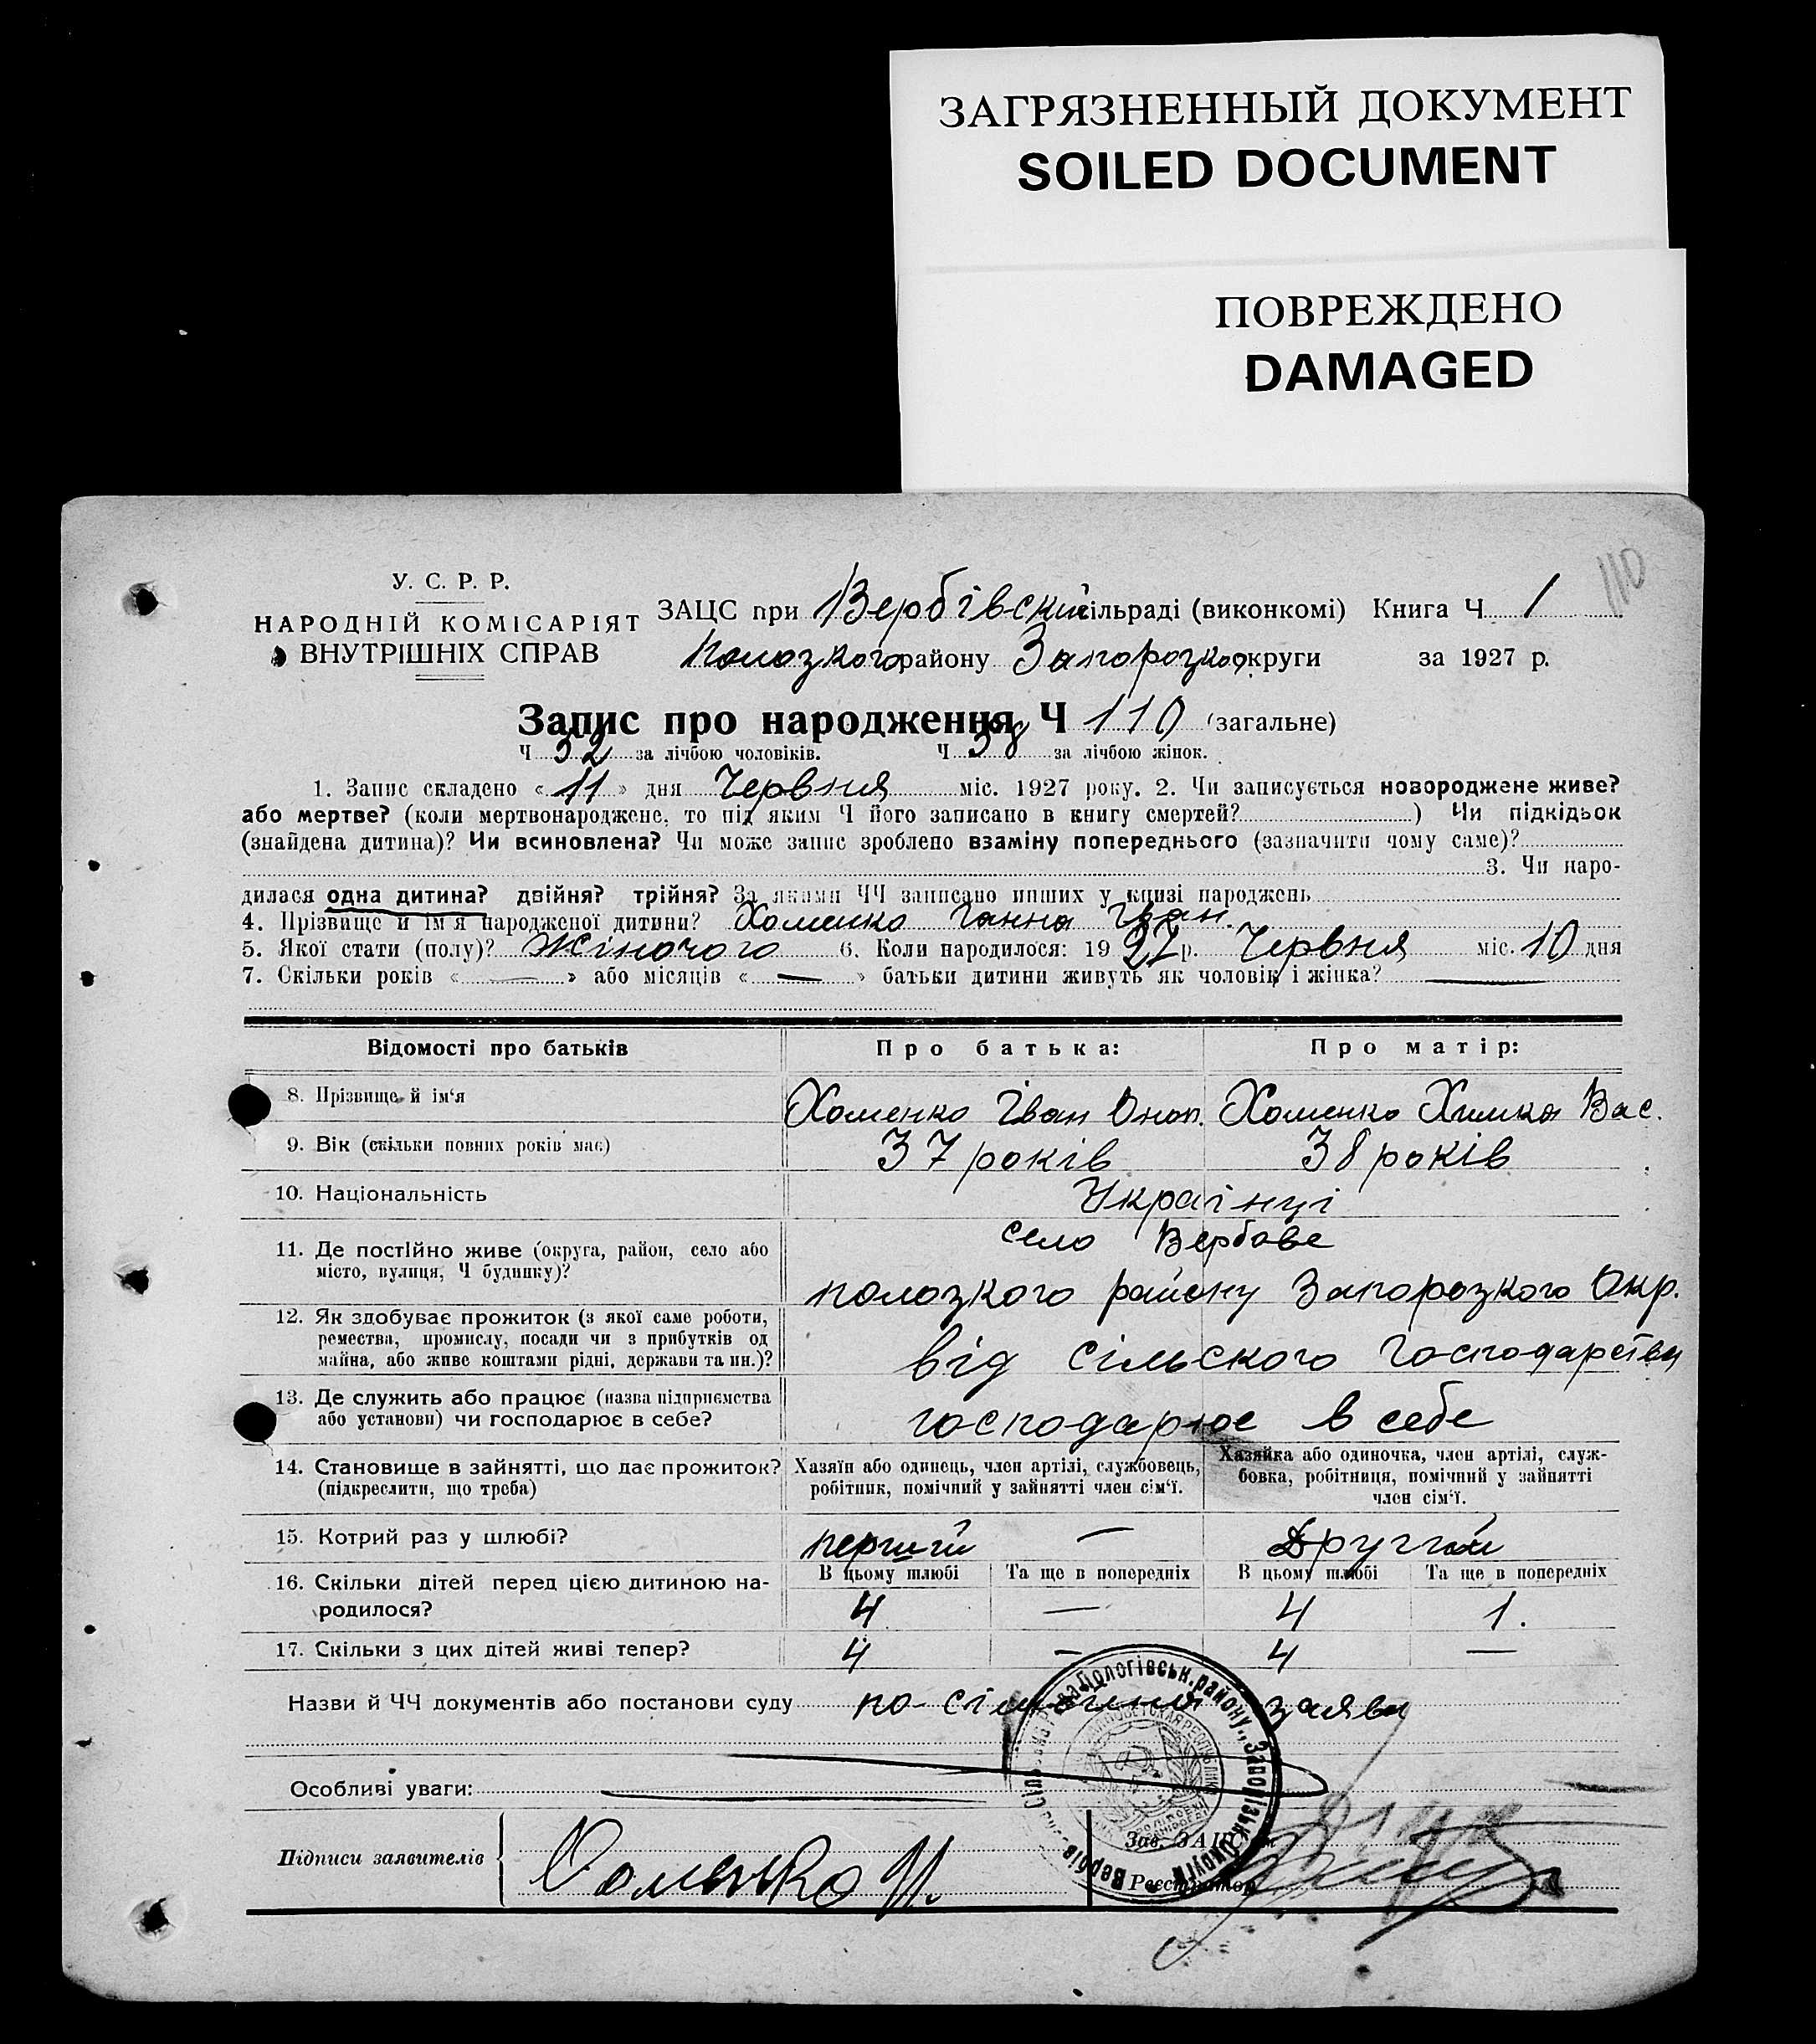 ЗАГРЯЗНЕННЫЙ ДОКУМЕНТ
SOILED DOCUMENT
ПОВРЕЖДЕНО
DAMAGED
110
У. С. Р. Р.
НАРОДНІЙ КОМІСАРІЯТ
ВНУТРІШНІХ СПРАВ
ЗАЦС при Вербівский сільраді (виконкомі) Книга Ч 1
Полозкого району Запорозкої округи за 1927 р.
Запис про народження Ч 110 (загальне)
Ч 52 за лічбою чоловіків. Ч 58 за лічбою жінок.
1. Запис складено « 11 » дня Червня міс. 1927 року. 2. Чи записується новороджене живе?
або мертве? (коли мертвонароджене, то під яким Ч його записано в книгу смертей? ) Чи підкідьок
(знайдена дитина)? Чи всиновлена? Чи може запис зроблено взаміну попереднього (зазначити чому саме)?
3. Чи наро-
дилася одна дитина? двійня? трійня? За якими ЧЧ записано инших у книзі народжень
4. Прізвище й ім'я народженої дитини? Хоменко Ганна Іван.
5. Якої стати (полу)? Жіночого 6. Коли народилося: 1927 р. Червня міс. 10 дня
7. Скільки років « — » або місяців « — » батьки дитини живуть як чоловік і жінка? —
Відомості про батьків Про батька: Про матір:
8. Прізвище й ім'я Хоменко Іван Оноп. Хоменко Химка Вас.
9. Вік (скільки повних років має) 37 років 38 років
10. Національність Українці
11. Де постійно живе (округа, район, село або
місто, вулиця, Ч будинку)?
село Вербове
полозкого району Запорозкого Окр.
12. Як здобуває прожиток (з якої саме роботи,
ремества, промислу, посади чи з прибутків од
майна, або живе коштами рідні, держави та ин.)?
від сільского господарства
13. Де служить або працює (назва підприємства
або установи) чи господарює в себе?
господарює в себе
14. Становище в зайнятті, що дає прожиток?
(підкреслити, що треба)
Хазяїн або одинець, член артілі, службовець,
робітник, помічний у зайнятті член сім'ї.
Хазяйка або одиночка, член артілі, служ-
бовка, робітниця, помічний у зайнятті
член сім'ї.
15. Котрий раз у шлюбі? перший — Другий
16. Скільки дітей перед цією дитиною на-
родилося?
В цьому шлюбі Та ще в попередніх В цьому шлюбі Та ще в попередніх
4 — 4 1.
17. Скільки з цих дітей живі тепер? 4 — 4 —
Назви й ЧЧ документів або постанови суду заява
Особливі уваги:
Підписи заявителів Хоменко И.
Зав. ЗАЦС'ом
Реєстратор
Пологівськ. району, Запорізьк. Округи